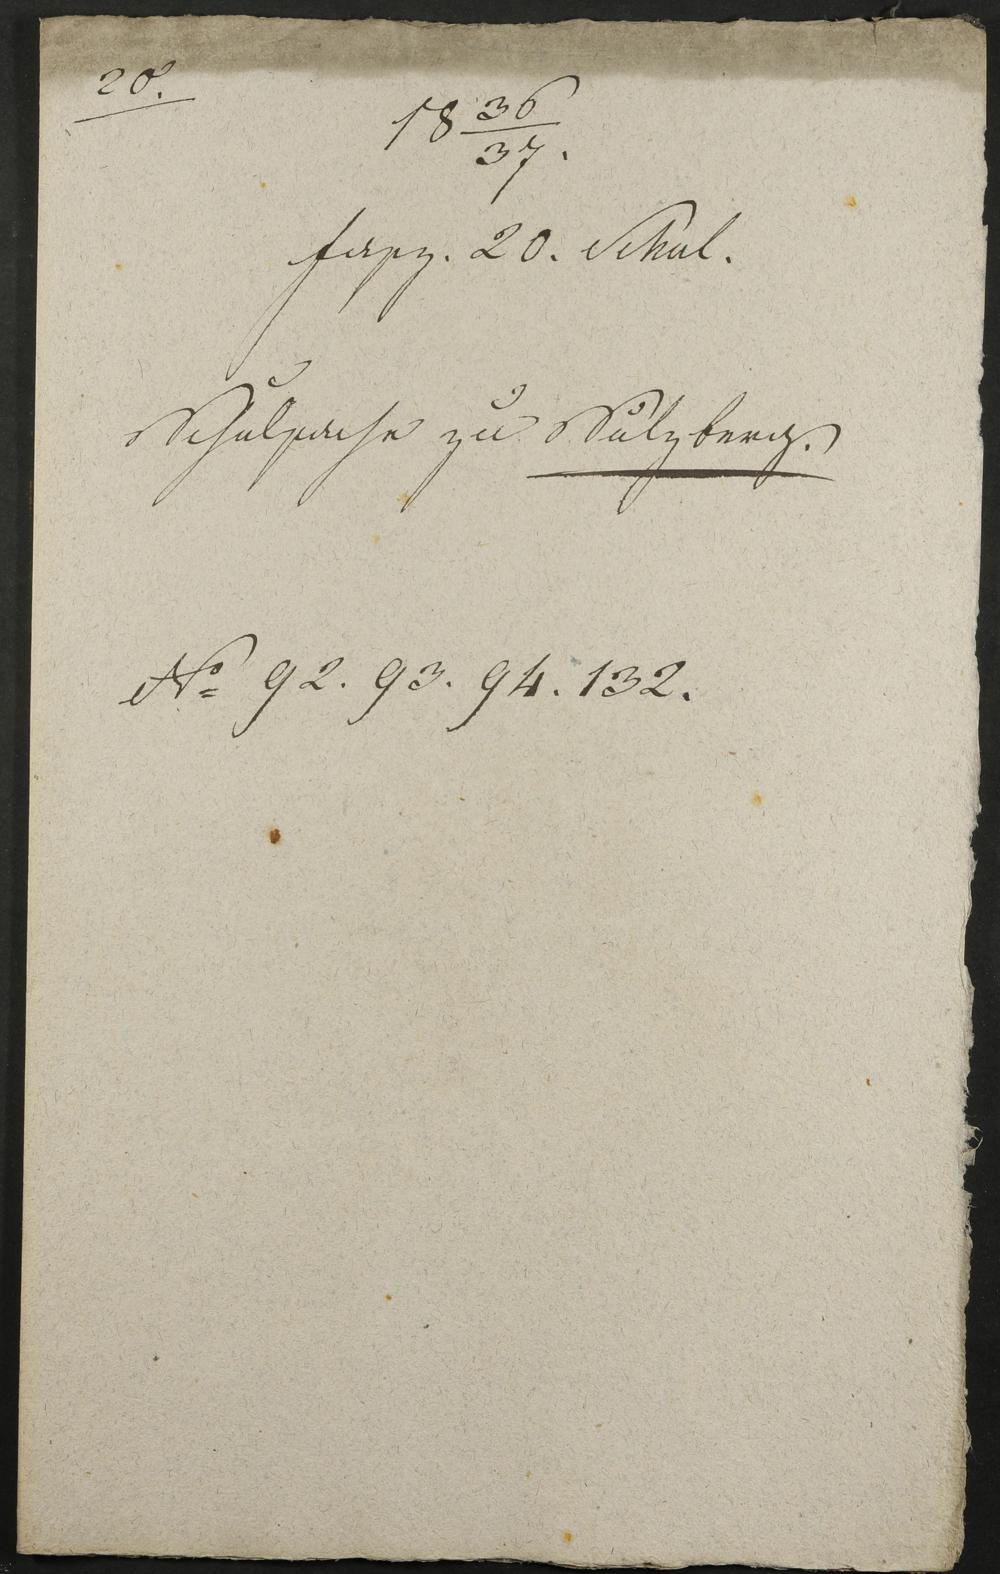 20.
18 36/37.
fasz. 20. Schul.
Schulsache zu Sulzberg.
No 92. 93. 94. 132.